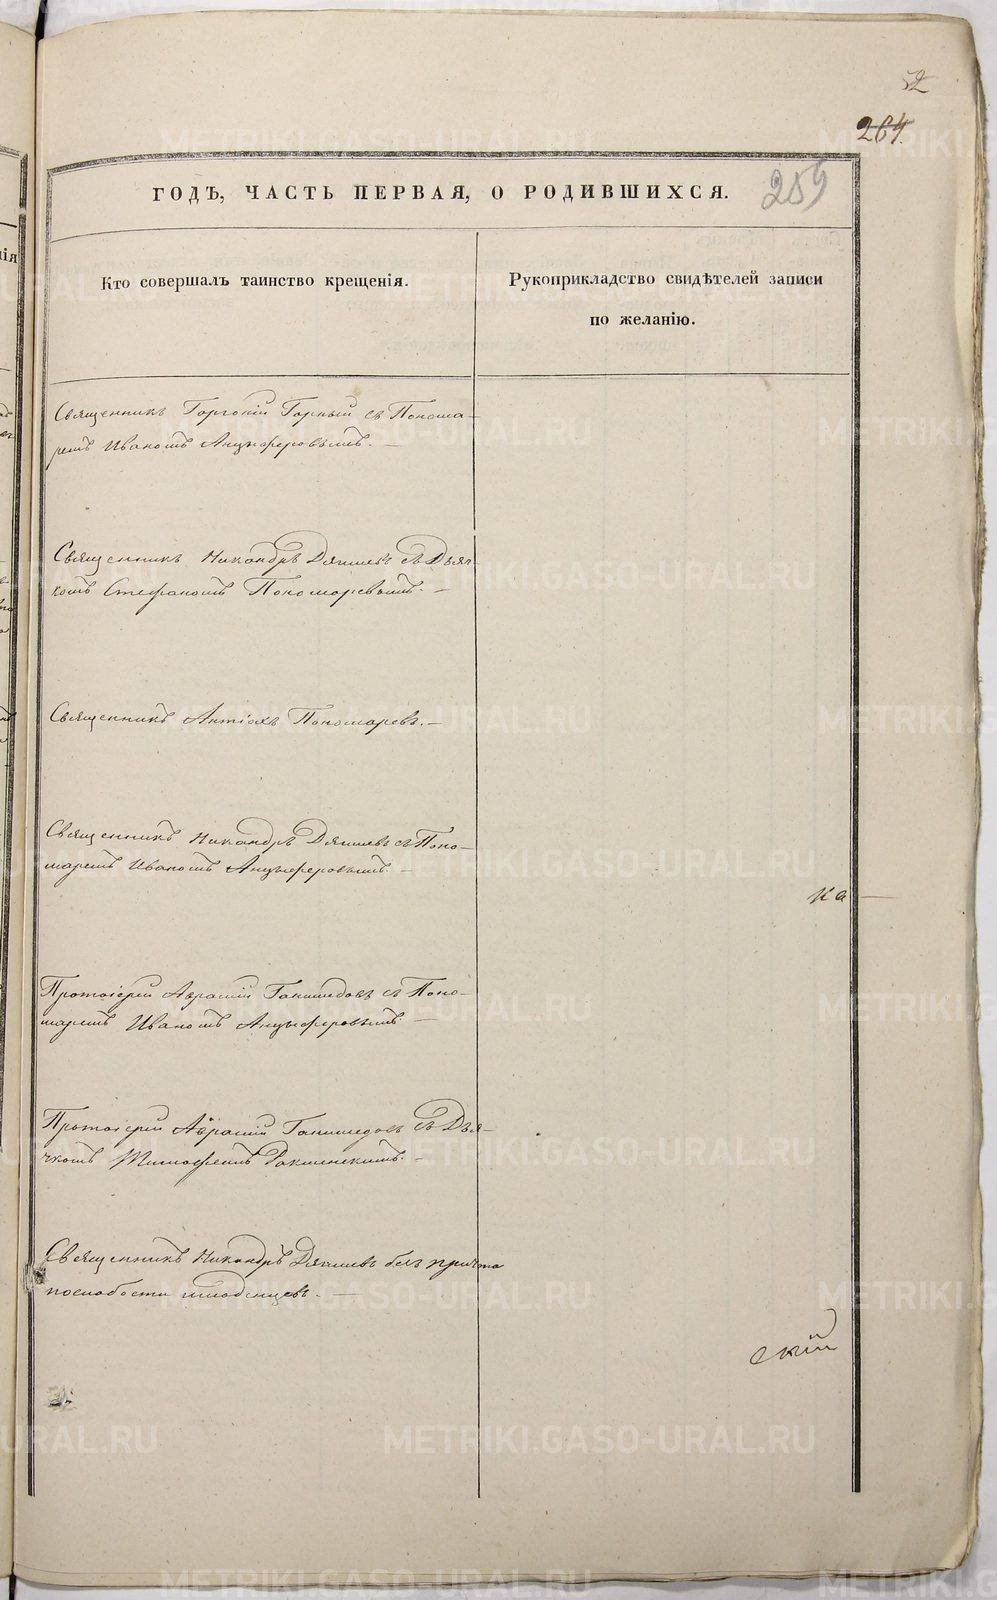 52
264.
259
ГОДЪ, ЧАСТЬ ПЕРВАЯ, О РОДИВШИХСЯ.
Кто совершалъ таинство крещенія.
Рукоприкладство свидѣтелей записи
по желанію.
Священникъ Горгоній Горный съ Понома-
ремъ Иваномъ Анцыферовымъ. —
Священникъ Никандръ съ Дьяч-
комъ Стефаномъ Пономаревымъ. —
Священникъ Антіохъ Пономаревъ. —
Священникъ Никандръ съ Поно-
маремъ Иваномъ Анцыферовымъ. —
Протоіерей съ Поно-
маремъ Иваномъ Анцыферовымъ —
на —
Протоіерей съ Дья-
чкомъ Тимофеемъ —
Священникъ Никандръ безъ причта
послабости младенцевъ. —
скій
METRIKI.GASO-URAL.RU